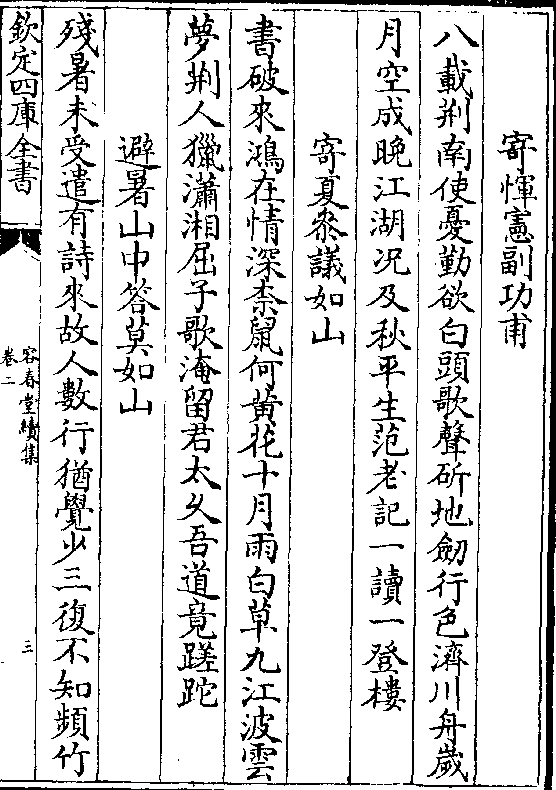 寄惲憲副功甫
八載荆南使憂勤欲白頭歌聲斫地劒行色濟川舟歲
月空成晚江湖况及秋平生范老記一讀一登樓
寄夏叅議如山
書破來鴻在情深柰鼠何黄花十月雨白草九江波雲
夢荆人獵瀟湘屈子歌淹留君太久吾道竟蹉跎
避暑山中答莫如山
殘暑未受遣有詩來故人數行猶覺少三復不知頻竹
欽定四庫全書
容春堂續集
卷二
三